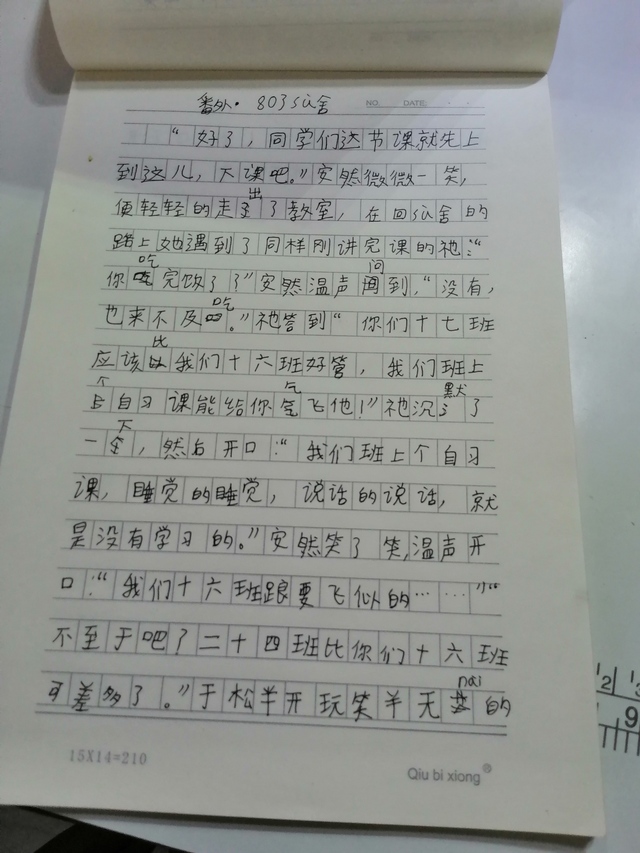 番外·803宿舍
NO. DATE: . .
“好了，同学们这节课就先上
到这儿，下课吧。”安然微微一笑，
便轻轻的走出了教室，在回宿舍的
路上她遇到了同样刚讲完课的祂：“
你吃完饭了？”安然温声问到，“没有，
也来不及吃。”祂答到“你们十七班
应该比我们十六班好管，我们班上
个自习课能给你气飞他！”祂沉默了
一下，然后开口：“我们班上个自习
课，睡觉的睡觉，说话的说话，就
是没有学习的。”安然笑了笑，温声开
口：“我们十六班跟要飞似的……”“
不至于吧了二十四班比你们十六班
可差多了。”于松半开玩笑半无nai的
15X14=210
Qiu bi xiong®